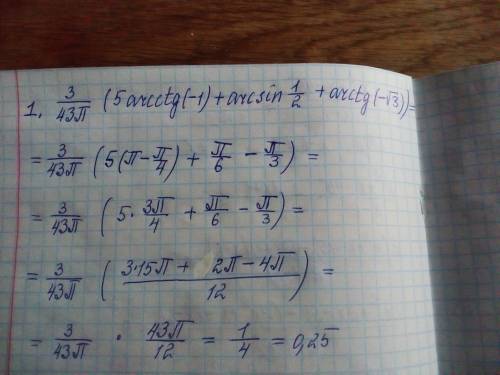 1. 3/43π (5arcctg(-1)+arcsin 1/2 + arctg(-√3))=
= 3/43π (5(π-π/4) + π/6 - π/3) =
= 3/43π (5·3π/4 + π/6 - π/3) =
= 3/43π ((3·15π + 2π - 4π)/12) =
= 3/43π · 43π/12 = 1/4 = 0,25